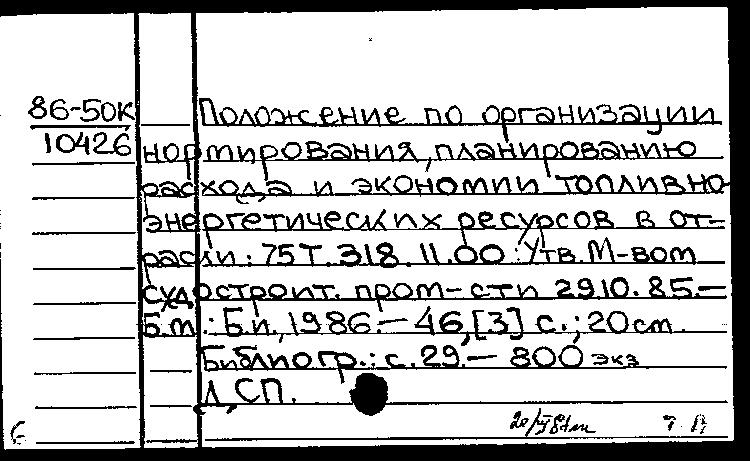 86-50К
10426
Положение по организации
нормирования, планированию
расхода и экономии топливно-
энергетических ресурсов в от-
расли: 75Т. 318. 11.00: Утв. М-вом
судостроит. пром-сти 29.10.85.—
Б.м.: Б.и., 1986.— 46, [3] с.; 20 см.
Библиогр.: с. 29.— 800 экз
ДСП.